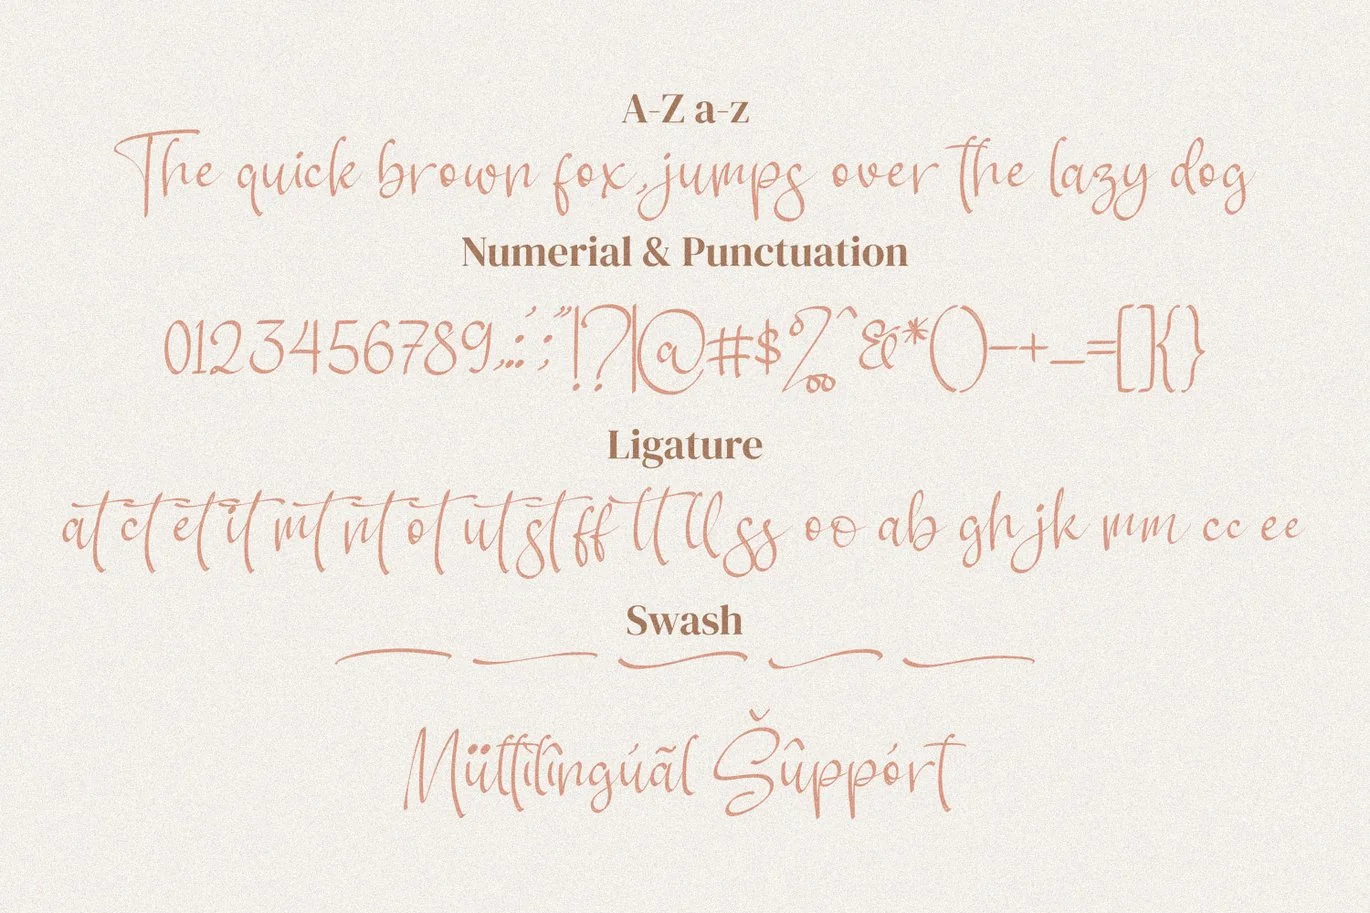 A-Z a-z
The quick brown fox, jumps over the lazy dog
Numerial & Punctuation
0123456789,.:;'"!?|@#$%^&*()-+_=[]{}
Ligature
at ct et it mt nt ot ut st ff tt ll ss oo ab gh jk mm cc ee
Swash
Mültilîngúãl Šûppórt